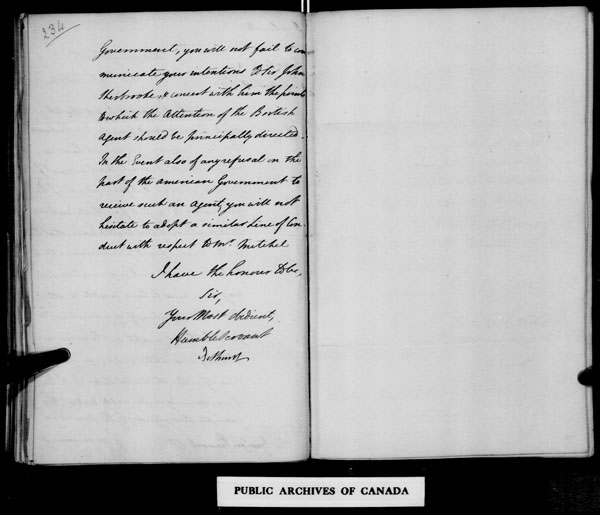 234
Government, you will not fail to com
municate your intentions to Sir John
Sherbrooke, & concert with him the points
to which the Attention of the British
Agent should be principally directed.
In the Event also of any refusal on the
part of the American Government to
receive such an Agent, you will not
hesitate to adopt a similar Line of Con
duct with respect to Mr. Mitchel
I have the honour to be,
Sir,
Your Most obedient,
Humble Servant
Bathurst
PUBLIC ARCHIVES OF CANADA